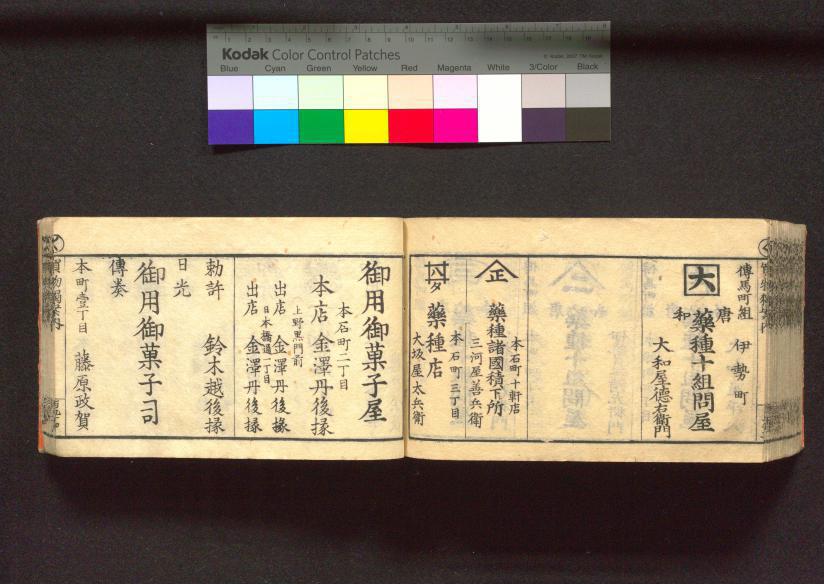 Kodak Color Control Patches
Blue Cyan Green Yellow Red Magenta White 3/Color Black
傳馬町組　伊勢町
大
唐和　藥種十組問屋
大和屋德右衞門
正
本石町十軒店
藥種諸國積下所
三河屋善兵衛
本石町三丁目
藥種店
大坂屋太兵衛
御用御菓子屋
本石町二丁目
本店　金澤丹後掾
上野黒門前
出店　金澤丹後掾
日本橋通一丁目
出店　金澤丹後掾
勅許　鈴木越後掾
日光
御用御菓子司
傳奏
本町壹丁目　藤原政賀